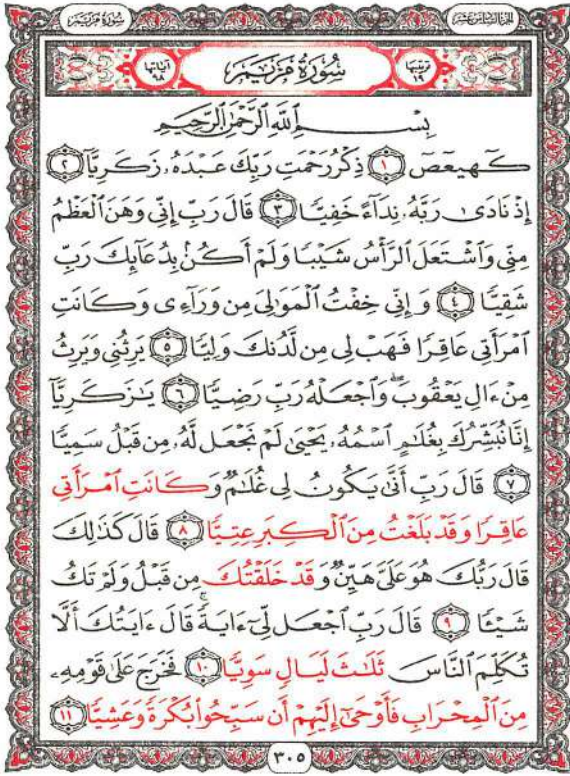 الجزء السادس عشر
سُورَةُ مَرْيَم
ترتيبها ١٩
سُورَةُ مَرْيَم
آياتها ٩٨
بِسْمِ ٱللَّهِ ٱلرَّحْمَٰنِ ٱلرَّحِيمِ
كٓهيعٓصٓ ١ ذِكْرُ رَحْمَتِ رَبِّكَ عَبْدَهُۥ زَكَرِيَّآ ٢
إِذْ نَادَىٰ رَبَّهُۥ نِدَآءً خَفِيًّا ٣ قَالَ رَبِّ إِنِّي وَهَنَ ٱلْعَظْمُ
مِنِّي وَٱشْتَعَلَ ٱلرَّأْسُ شَيْبًا وَلَمْ أَكُنۢ بِدُعَآئِكَ رَبِّ
شَقِيًّا ٤ وَإِنِّي خِفْتُ ٱلْمَوَٰلِيَ مِن وَرَآءِي وَكَانَتِ
ٱمْرَأَتِي عَاقِرًا فَهَبْ لِي مِن لَّدُنكَ وَلِيًّا ٥ يَرِثُنِي وَيَرِثُ
مِنْ ءَالِ يَعْقُوبَ ۖ وَٱجْعَلْهُ رَبِّ رَضِيًّا ٦ يَٰزَكَرِيَّآ
إِنَّا نُبَشِّرُكَ بِغُلَٰمٍ ٱسْمُهُۥ يَحْيَىٰ لَمْ نَجْعَل لَّهُۥ مِن قَبْلُ سَمِيًّا
٧ قَالَ رَبِّ أَنَّىٰ يَكُونُ لِي غُلَٰمٌ وَكَانَتِ ٱمْرَأَتِي
عَاقِرًا وَقَدْ بَلَغْتُ مِنَ ٱلْكِبَرِ عِتِيًّا ٨ قَالَ كَذَٰلِكَ
قَالَ رَبُّكَ هُوَ عَلَيَّ هَيِّنٌ وَقَدْ خَلَقْتُكَ مِن قَبْلُ وَلَمْ تَكُ
شَيْـًٔا ٩ قَالَ رَبِّ ٱجْعَل لِّيٓ ءَايَةً ۚ قَالَ ءَايَتُكَ أَلَّا
تُكَلِّمَ ٱلنَّاسَ ثَلَٰثَ لَيَالٍ سَوِيًّا ١٠ فَخَرَجَ عَلَىٰ قَوْمِهِۦ
مِنَ ٱلْمِحْرَابِ فَأَوْحَىٰٓ إِلَيْهِمْ أَن سَبِّحُوا۟ بُكْرَةً وَعَشِيًّا ١١
٣٠٥